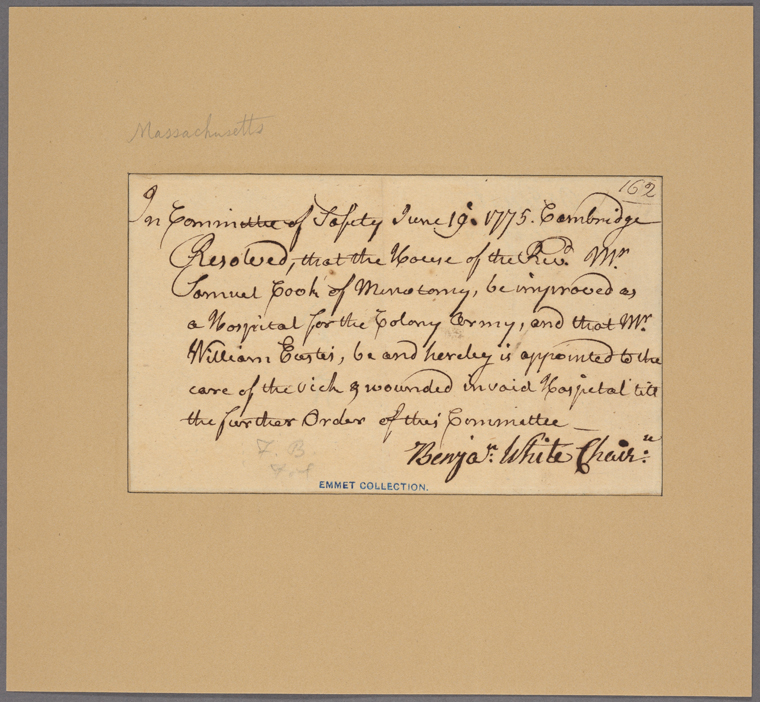 Massachusetts
162
In Committee of Safety June 19. 1775. Cambridge
Resolved, that the House of the Revd. Mr.
Samuel Cook of Menotomy, be improved as
a Hospital for the Colony Army, and that Mr.
William Eustis, be and hereby is appointed to the
care of the sick & wounded in said Hospital till
the further Order of this Committee _
Benjan. White Chairn.
F. B
EMMET COLLECTION.